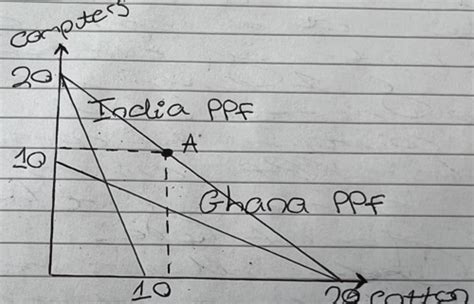 computers
20
India PPf
A
10
Ghana PPf
10
20 cotton